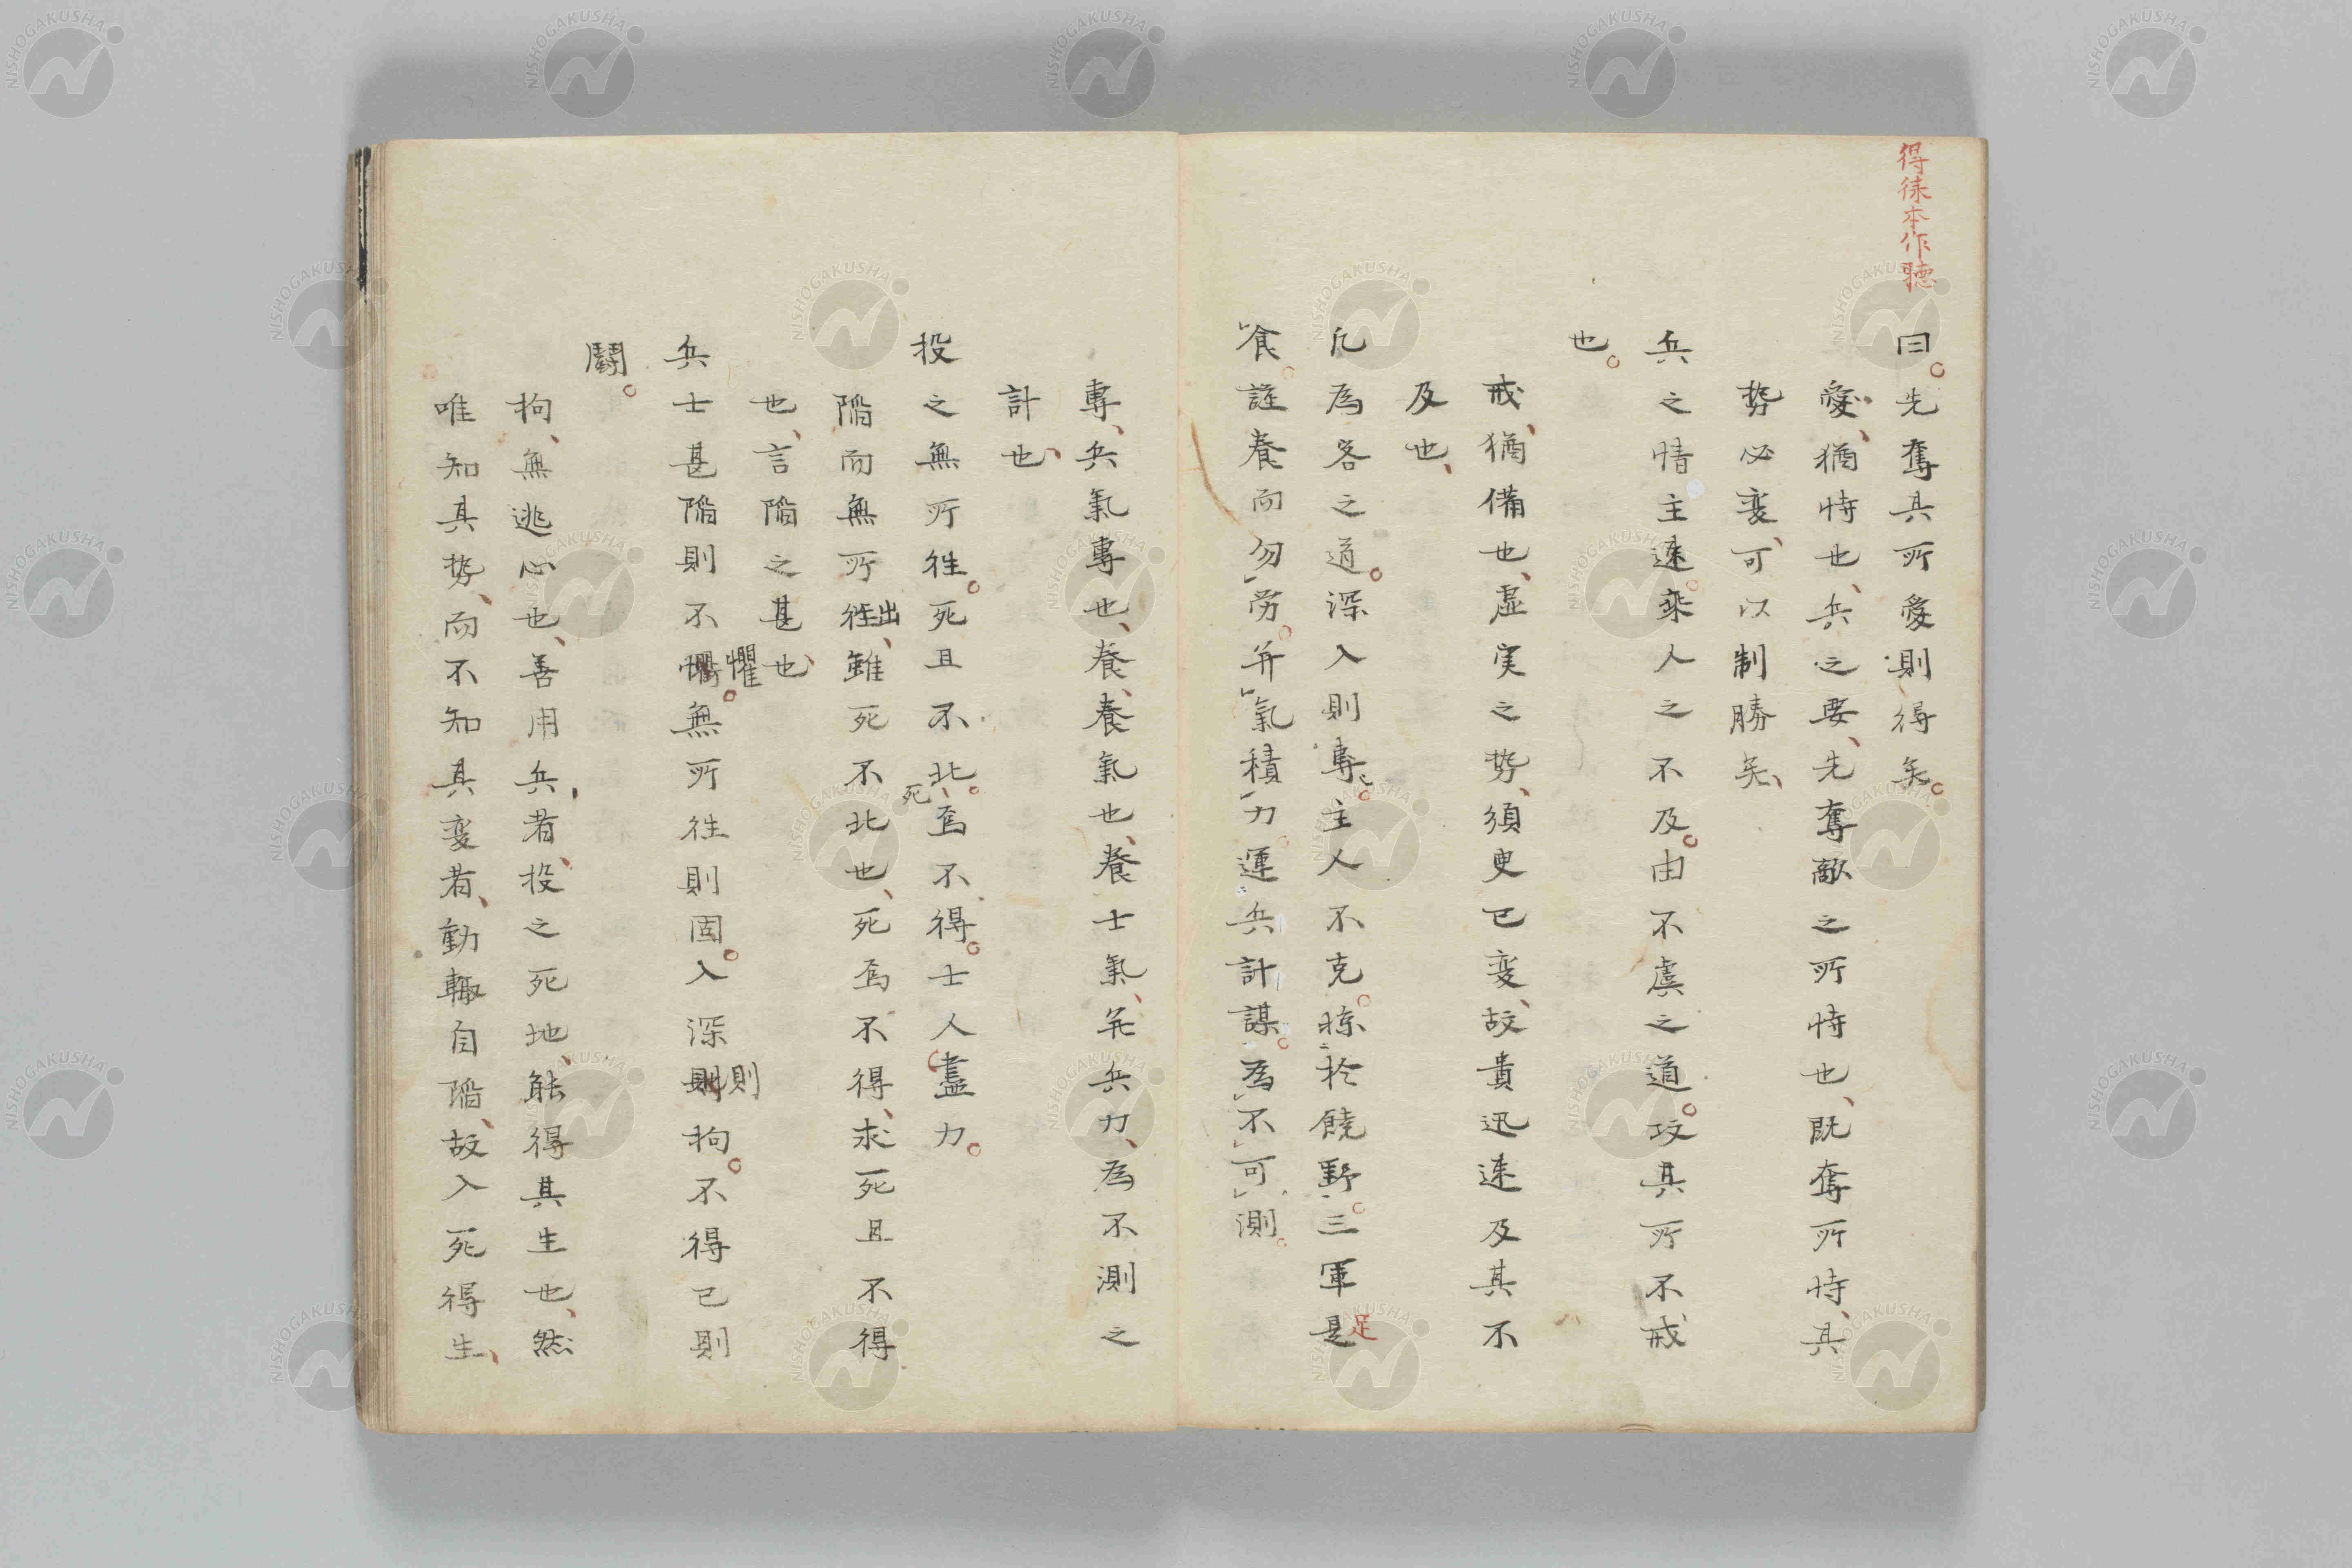 得徐本作聴
曰。先奪其所愛則得矣。
愛、猶恃也、兵之要、先奪敵之所恃也、既奪所恃、其
勢必変、可以制勝矣、
兵之情主速。乘人之不及。由不虞之道。攻其所不戒
也。
戒、猶備也、虛実之勢、須臾已変、故貴迅速及其不
及也、
凡為客之道。深入則專。主人不克。掠於饒野。三軍是足
食。謹養而勿労。并氣積力。運兵計謀。為不可測。
專、兵氣專也、養、養氣也、養士氣、并兵力、為不測之
計也、
投之無所往。死且不北。死焉不得。士人盡力。
陥而無所往出、雖死不北也、死焉不得、求死且不得
也、言陥之甚也、
兵士甚陥則不懼。無所往則固。入深則則拘。不得已則
鬪。
拘、無逃心也、善用兵者、投之死地、能得其生也、然
唯知其勢、而不知其変者、動輙自陥、故入死得生、
NISHOGAKUSHA